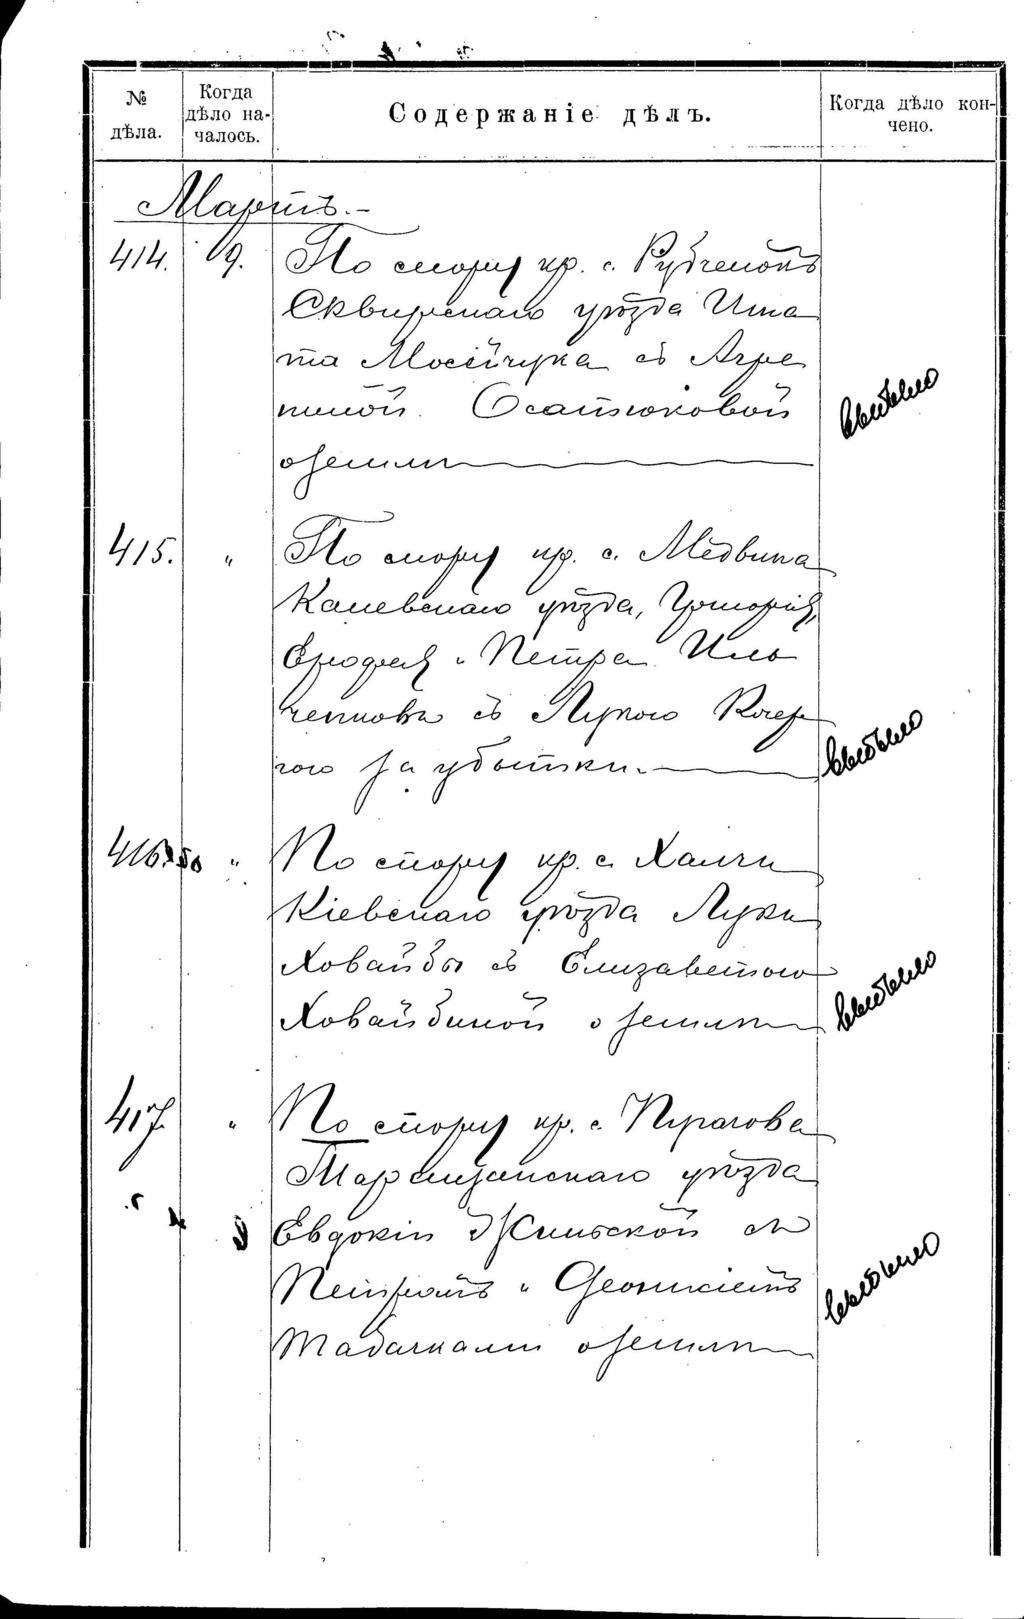 № дѣла.
Когда дѣло на-
чалось.
Содержаніе дѣлъ.
Когда дѣло кон-
чено.
Мартъ.-
414. 9. По спору кр. с. Рубченокъ
Сквирскаго уѣзда Ипа
та Мосѣйчука съ Агре
пиной Осатюковой
о земли
415. " По спору кр. с. Медвина
Каневскаго уѣзда, Григорія,
Ерофея и Петра Иль
ченковъ съ Лукою Кочер
гою за убытки.
416. " По спору кр. с. Халчи
Кіевскаго уѣзда Луки
Ховайбы съ Елизаветою
Ховайбиной о земли
417. " По спору кр. с. Пугачова
Таращанскаго уѣзда
Евдокіи съ
Петромъ и
Табачками о земли